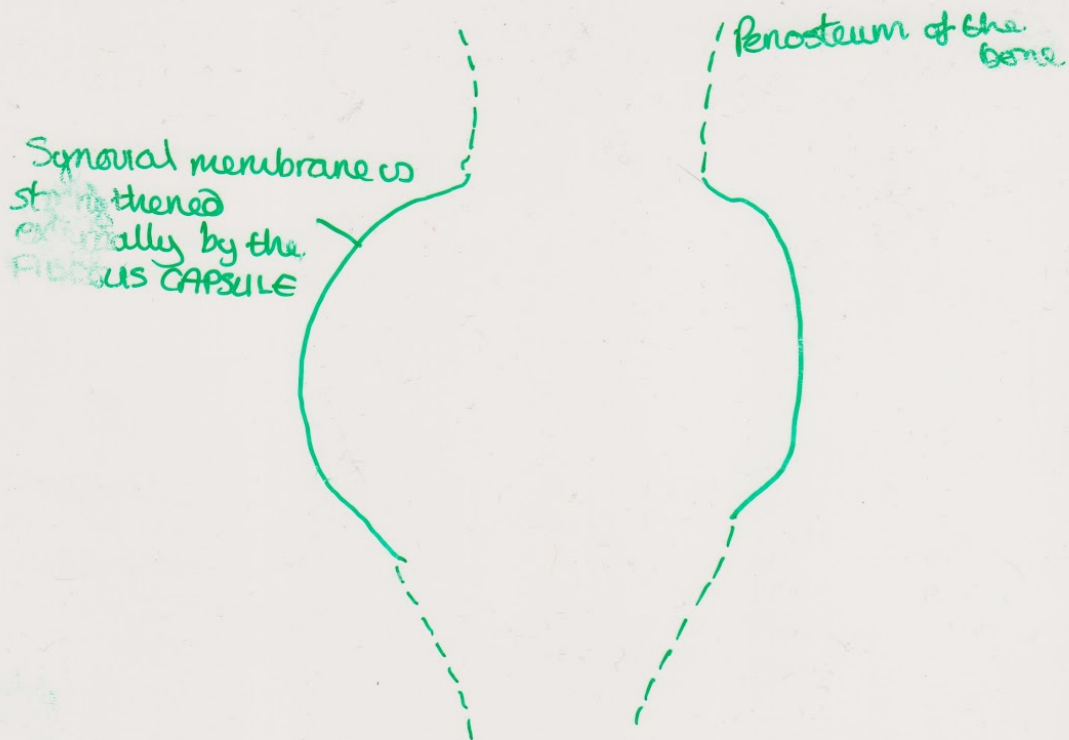 Periosteum of the
bone
Synovial membrane is
strengthened
externally by the
FIBROUS CAPSULE